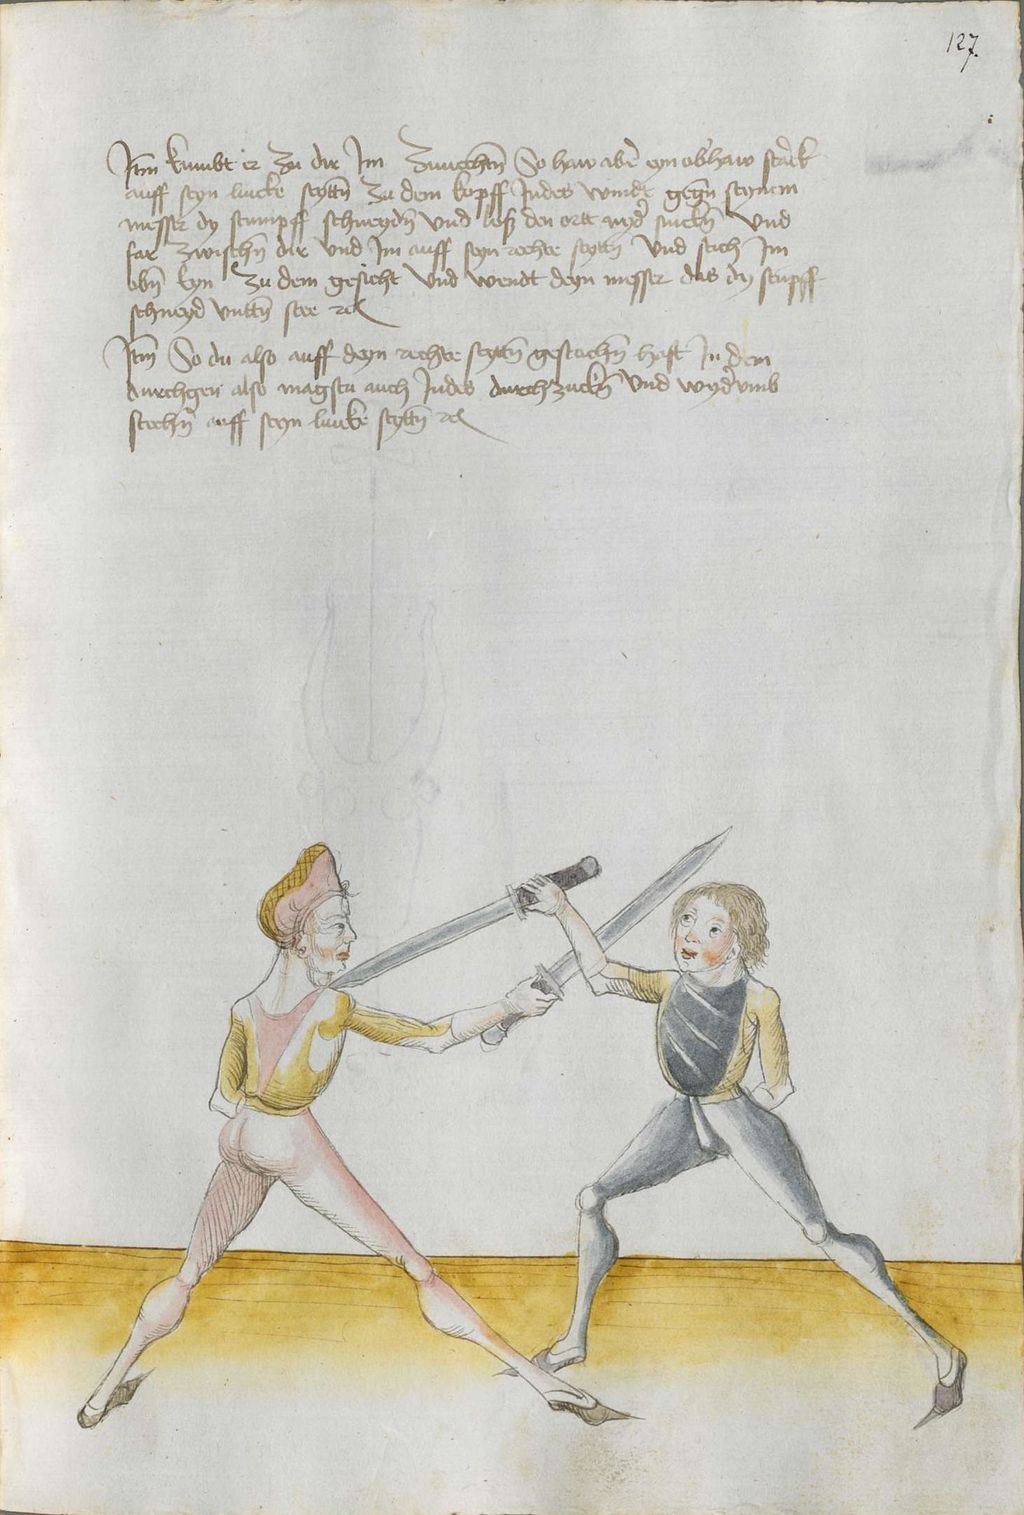 127.
Itm̄ kumbt er zu dir Im zuuechtn̄ So haw aber eyn obʼhaw starck
auff seyn lincke seyttn̄ zu dem kopff Indes winde gegn̄ seynem
messer dy stumpff schneydn̄ vnd loß den ortt nydʼ sinckn̄ vnd
far zwischn̄ dir vnd Im auff seyn rechte seyttn̄ vnd stich Im
obn̄ eyn zu dem gesicht vnd wendt deyn messer das dy stupff
schneyd vnttn̄ stee ꝛc
Itm̄ So du also auff deyn rechte seyttn̄ gestochn̄ hast In dem
durchgen also magstu auch Indes durchzuckn̄ vnd wydʼvmb
stechn̄ auff seyn lincke seyttn̄ ꝛc